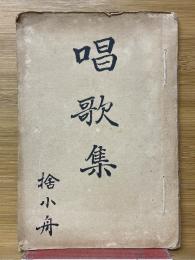 唱歌集
捨小舟